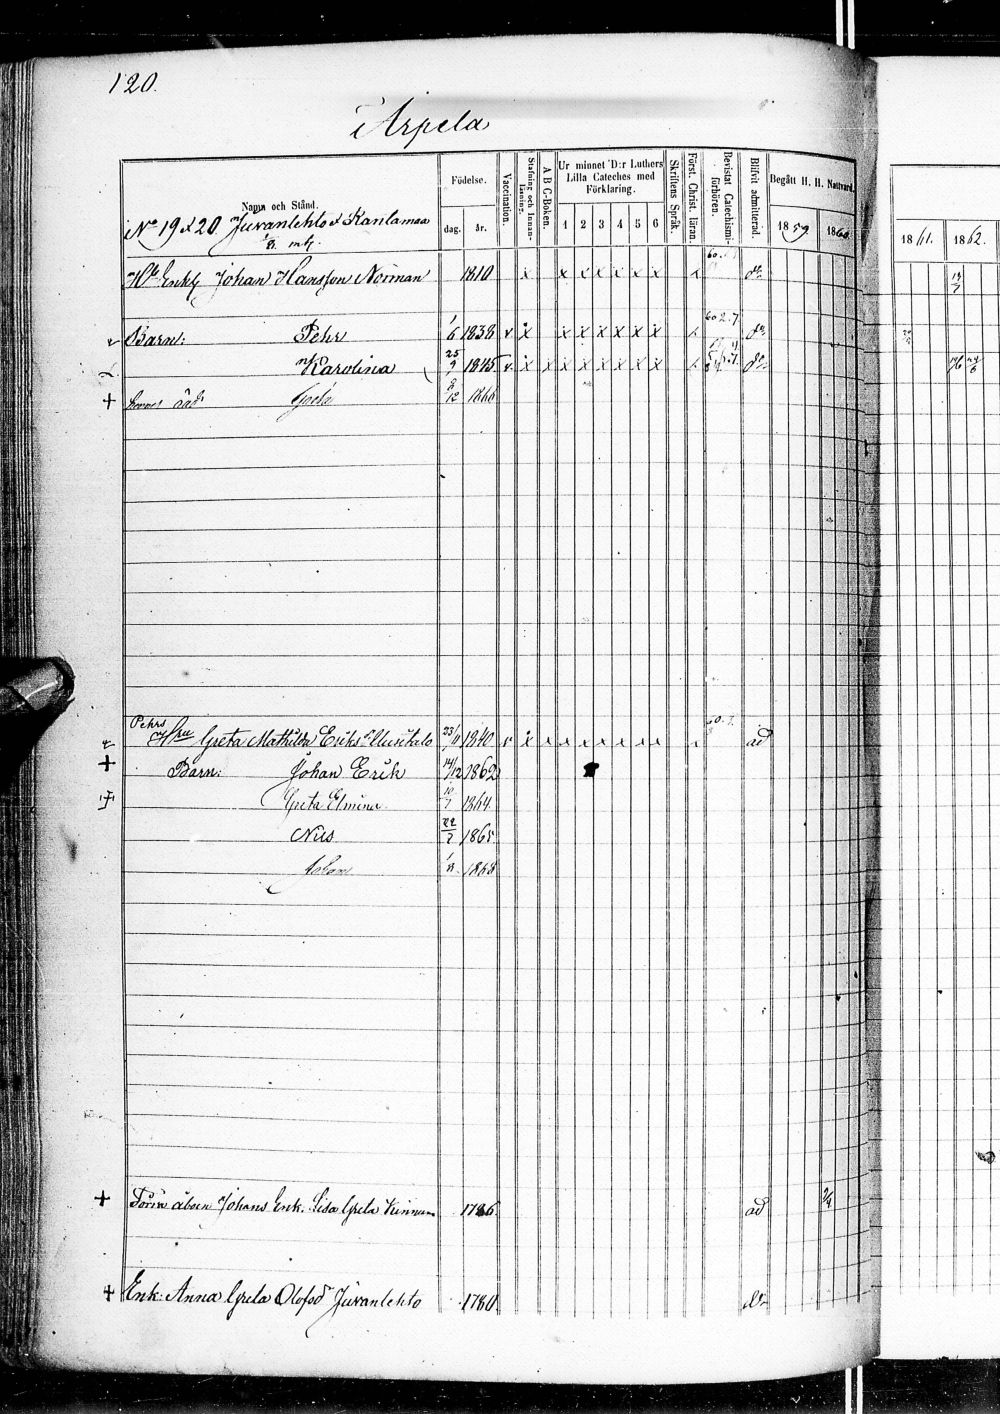 120.
Arpela
Namn och Stånd.
Födelse.
dag. år.
Vaccination.
Stafning och Innan-läsning.
A B C-Boken.
Ur minnet D:r Luthers Lilla Cateches med Förklaring.
1 2 3 4 5 6
Skriftens Språk.
Först. Christ. läran.
Bevistat Catechismi-förhören.
Blifvit admitterad.
Begått H. H. Nattvard.
1859. 1860. 1861. 1862.
No 19 & 20 Juvanlehto & Kanlamaa
1/8 mtl.
Johan Hansson Norman 1810 x x x x x x x
60. 2. 7.
Barn: Pehr 1/6 1838 v x x x x x x x
Karolina 25/9 1845 v x x x x x x x x
Greta 8/12 1866
Pehrs
Hru Greta Mathilda Eriksdr Uusitalo 23/11 1840 v x x x x x x x x ad
+ Barn: Johan Erik 14/12 1862
Greta Elmina 10/7 1864
Nils 22/7 1865
1/8 1868
+ Förra åboen Johans Enk. Lisa Greta Kinnunen 1786 ad 2/4
+ Enk: Anna Greta Olofsdr Juvanlehto 1780